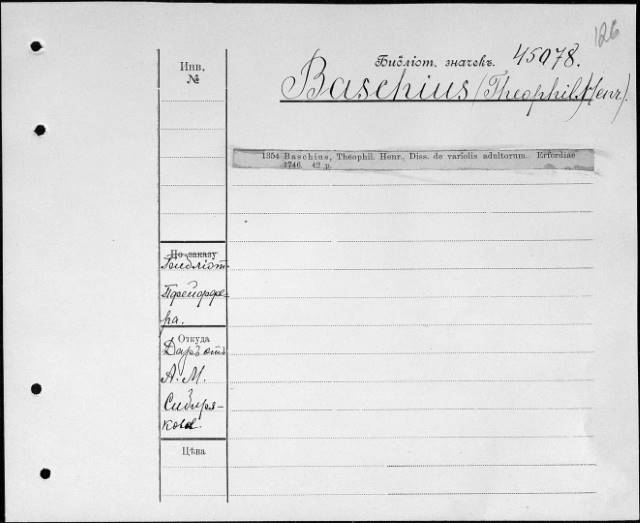 126
Библіот. значекъ. 45078.
Инв.
№
Baschius (Theophil. Henr.).
1354 Baschius, Theophil. Henr., Diss. de variolis adultorum. Erfordiae
1746. 42 p.
По заказу
Библіот.
Пфейффе-
ра.
Откуда
Даръ отъ
А. М.
Сибиря-
кова.
Цѣна